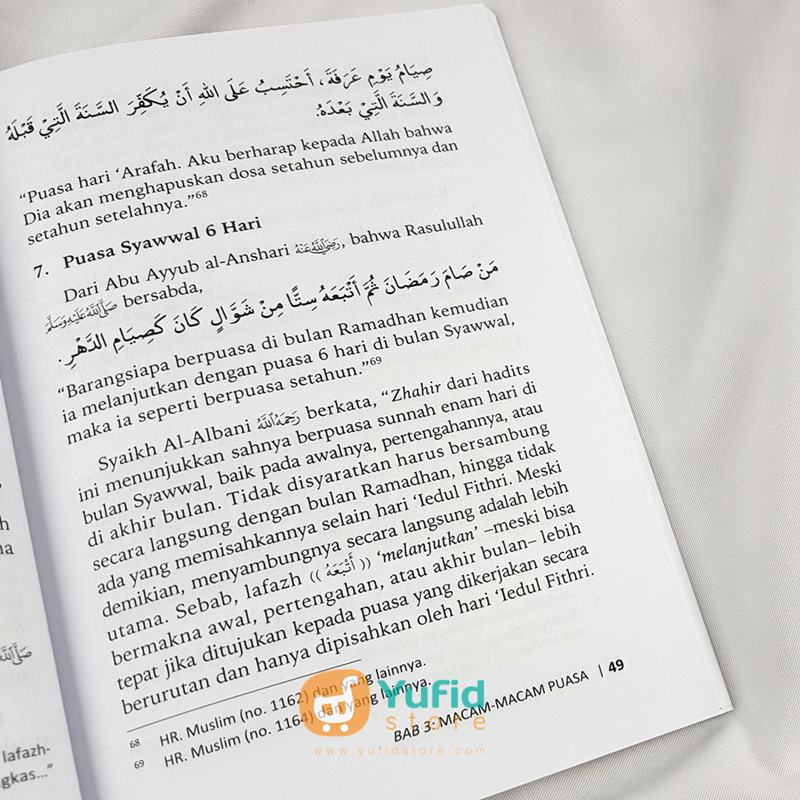 صِيَامُ يَوْمِ عَرَفَةَ، أَحْتَسِبُ عَلَى اللهِ أَنْ يُكَفِّرَ السَّنَةَ الَّتِيْ قَبْلَهُ
وَالسَّنَةَ الَّتِيْ بَعْدَهُ.
“Puasa hari ‘Arafah. Aku berharap kepada Allah bahwa
Dia akan menghapuskan dosa setahun sebelumnya dan
setahun setelahnya.”68
7. Puasa Syawwal 6 Hari
Dari Abu Ayyub al-Anshari رَضِيَ اللَّهُ عَنْهُ, bahwa Rasulullah
صَلَّى اللَّهُ عَلَيْهِ وَسَلَّمَ bersabda,
مَنْ صَامَ رَمَضَانَ ثُمَّ أَتْبَعَهُ سِتًّا مِنْ شَوَّالٍ كَانَ كَصِيَامِ الدَّهْرِ.
“Barangsiapa berpuasa di bulan Ramadhan kemudian
ia melanjutkan dengan puasa 6 hari di bulan Syawwal,
maka ia seperti berpuasa setahun.”69
Syaikh Al-Albani رَحِمَهُ اللَّهُ berkata, “Zhahir dari hadits
ini menunjukkan sahnya berpuasa sunnah enam hari di
bulan Syawwal, baik pada awalnya, pertengahannya, atau
di akhir bulan. Tidak disyaratkan harus bersambung
secara langsung dengan bulan Ramadhan, hingga tidak
ada yang memisahkannya selain hari ‘Iedul Fithri. Meski
demikian, menyambungnya secara langsung adalah lebih
utama. Sebab, lafazh (( أَتْبَعَهُ )) ‘melanjutkan’ –meski bisa
bermakna awal, pertengahan, atau akhir bulan– lebih
tepat jika ditujukan kepada puasa yang dikerjakan secara
berurutan dan hanya dipisahkan oleh hari ‘Iedul Fithri.
68 HR. Muslim (no. 1162) dan yang lainnya.
69 HR. Muslim (no. 1164) dan yang lainnya.
BAB 3: MACAM-MACAM PUASA | 49
صَلَّى اللَّهُ
lafazh-
gkas...”
Yufid
store
www.yufidstore.com